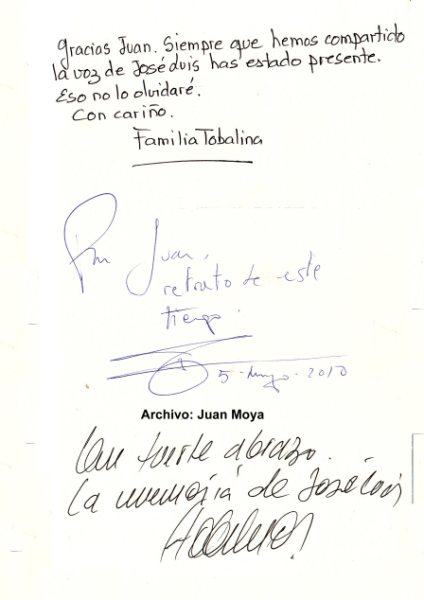 Gracias Juan. Siempre que hemos compartido
la voz de José Luis has estado presente.
Eso no lo olvidaré.
Con cariño.
Familia Tobalina
Juan,
retrato de este
tiempo.
5-mayo-2010
Archivo: Juan Moya
Un fuerte abrazo.
La memoria de José Luis